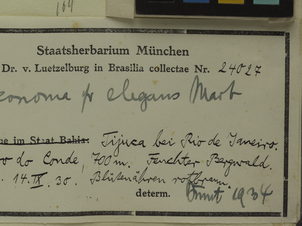 164
Staatsherbarium München
Dr. v. Luetzelburg in Brasilia collectae Nr. 24027
conoma pr elegans Mart
be im Staat Bahia: Tijuca bei Rio de Janeiro.
o do Conde, 700 m. Feuchter Bergwald.
14. IX. 30. Blütenähren rotbraun.
determ. Burret 1934